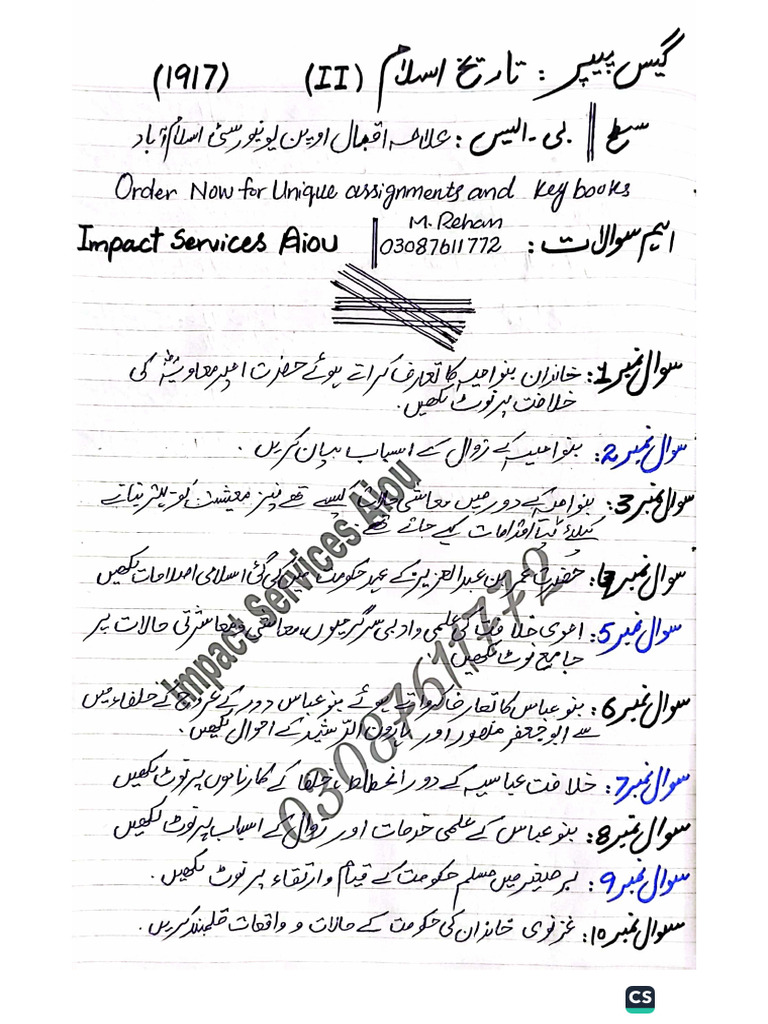 گیس پیپر : تاریخ اسلام (II) (1917)
سطح || بی-ایس : علامہ اقبال اوپن یونیورسٹی اسلام آباد
Order Now for Unique assignments and Key books
اہم سوالات : M. Rehan 03087611772 | Impact Services Aiou
سوال نمبر 1: خاندان بنو امیہ کا تعارف کراتے ہوئے حضرت امیر معاویہؓ کی
خلافت پر نوٹ لکھیں.
سوال نمبر 2: بنو امیہ کے زوال کے اسباب بیان کریں.
سوال نمبر 3: بنو امیہ کے دور میں معاشی حالات کیسے تھے نیز معیشت کو بہتر بنانے
کیلئے کیا اقدامات کیے جاتے تھے.
سوال نمبر 4: حضرت عمر بن عبدالعزیز کے عہد حکومت میں کی گئی اسلامی اصلاحات لکھیں
سوال نمبر 5: اموی خلافت کی علمی و ادبی سرگرمیوں، معاشی و معاشرتی حالات پر
جامع نوٹ لکھیں.
سوال نمبر 6: بنو عباس کا تعارف کرواتے ہوئے بنو عباس دور کے عروج کے خلفاء میں
سے ابو جعفر منصور اور ہارون الرشید کے احوال لکھیں.
سوال نمبر 7: خلافت عباسیہ کے دور انحطاط خلفا کے کارناموں پر نوٹ لکھیں
سوال نمبر 8: بنو عباس کے علمی خدمات اور زوال کے اسباب پر نوٹ لکھیں
سوال نمبر 9: برصغیر میں مسلم حکومت کے قیام و ارتقاء پر نوٹ لکھیں.
سوال نمبر 10: غزنوی خاندان کی حکومت کے حالات و واقعات قلمبند کریں.
Impact Services Aiou
03087611772
CS